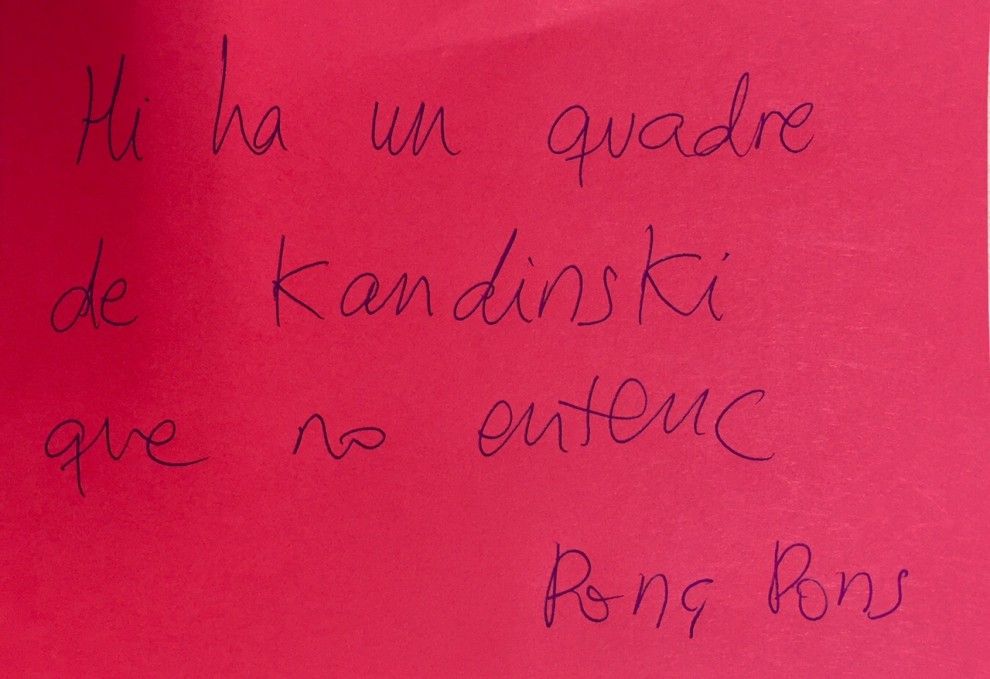 Hi ha un quadre
de Kandinski
que no entenc
Ponç Pons